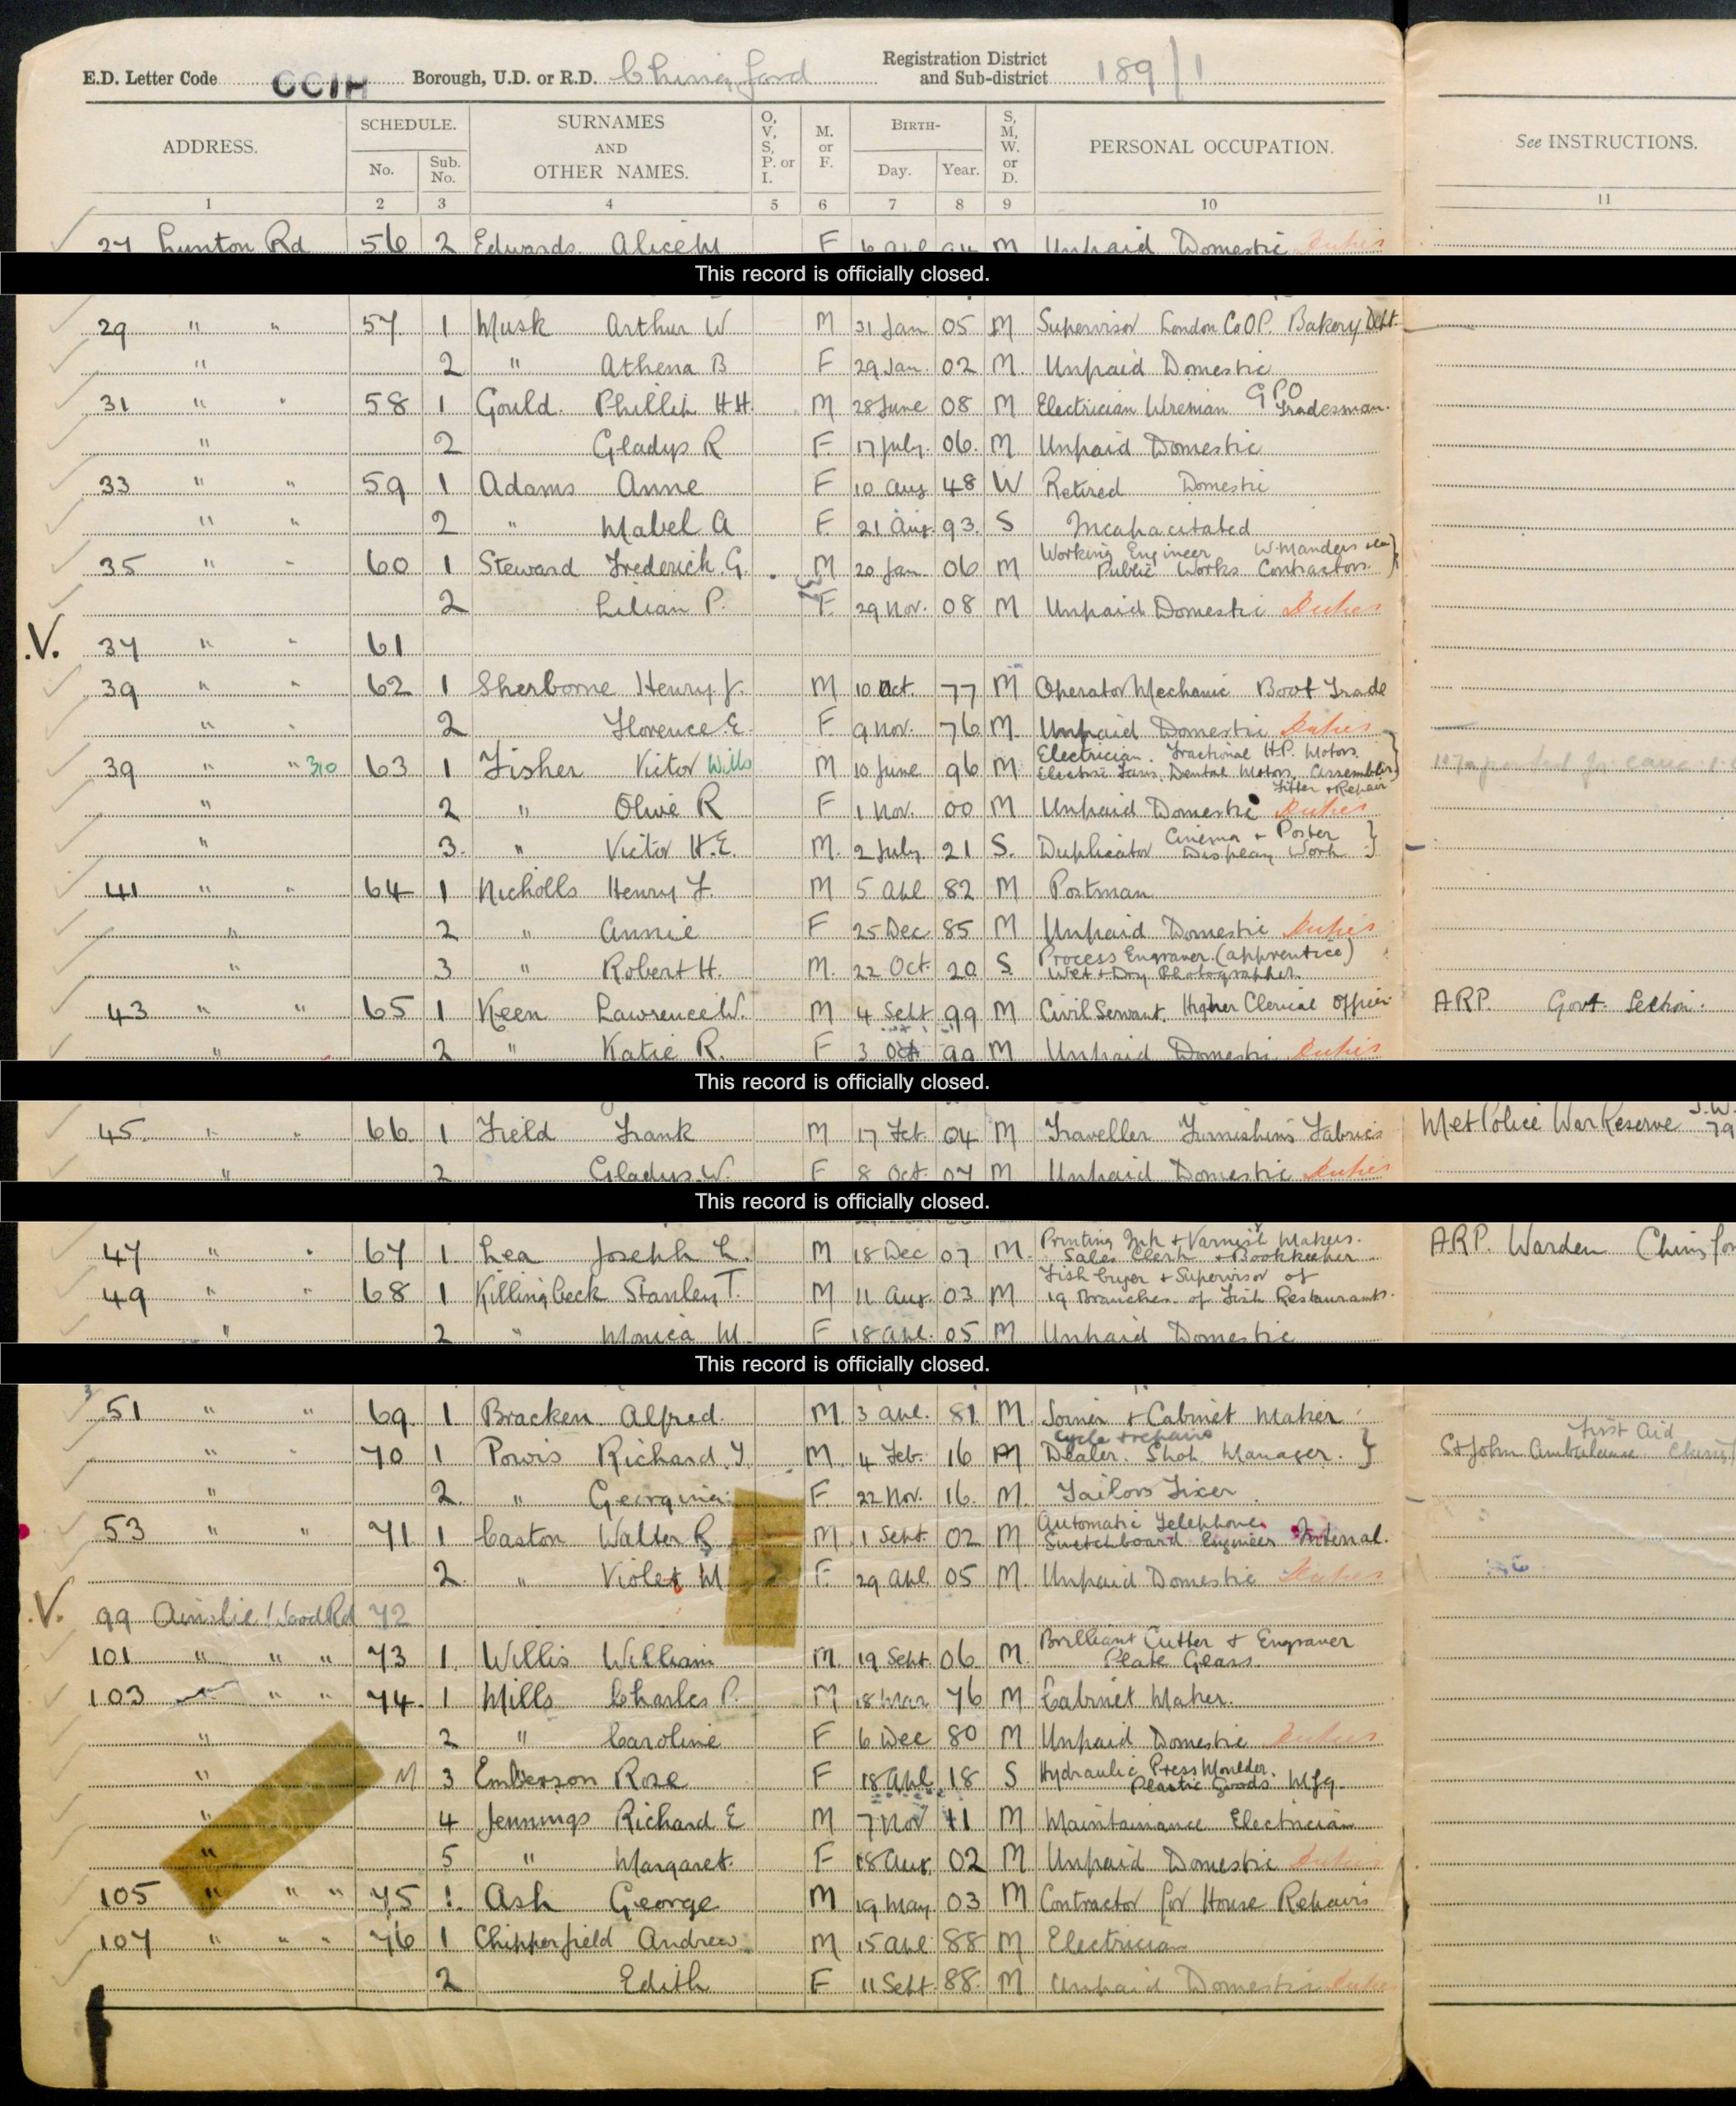 E.D. Letter Code CCIH Borough, U.D. or R.D. Chingford Registration District and Sub-district 189/1
ADDRESS. SCHEDULE. No. Sub. No. SURNAMES AND OTHER NAMES. O, V, S, P. or I. M. or F. BIRTH- Day. Year. S, M, W. or D. PERSONAL OCCUPATION. See INSTRUCTIONS.
1 2 3 4 5 6 7 8 9 10 11
27 Rd 56 2 Edwards Alice M F 6 M Unpaid Domestic Duties
This record is officially closed.
29 " " 57 1 Musk Arthur W M 31 Jan 05 M Supervisor London Co OP. Bakery Dept.
" 2 " Athena B F 29 Jan. 02 M. Unpaid Domestic
31 " " 58 1 Gould. Phillip H H. M 28 June 08 M Electrician Wireman GPO Tradesman.
" 2 Gladys R F 17 July. 06. M Unpaid Domestic
33 " " 59 1 Adams Anne F 10 Aug 48 W Retired Domestic
" " 2 " Mabel A F. 21 Aug. 93. S Incapacitated
35 " " 60 1 Steward Frederick. G. M 20 Jan 06 M Working Engineer W. Manders Public Works Contractors
2 Lilian P. F. 29 Nov. 08 M Unpaid Domestic Duties
.V. 37 " " 61
39 " " 62 1 Sherborne Henry J. M 10 Oct. 77 M Operator Mechanic Boot Trade
" " 2 Florence. E. F 9 Nov. 76 M. Unpaid Domestic Duties
39 " " 310 63 1 Fisher Victor Wills M 10 June 96 M Electrician. Fractional H.P. Motors. Electric Fans, Dental Motors, Assembler Fitter + Repair
" 2 " Olive R F 1 Nov. 00 M Unpaid Domestic Duties
" 3. " Victor H.E. M. 2 July 21 S. Duplicator Cinema + Poster Display Work
41 " " 64 1 Nicholls Henry F. M 5 Apl 82 M Postman
" 2 " Annie F 25 Dec 85 M Unpaid Domestic Duties
" 3 " Robert H. M. 22 Oct. 20 S Process Engraver. (apprentice) Wet + Dry Photographer.
43 " " 65 1 Keen Lawrence W. M 4 Sept 99 M Civil Servant. Higher Clerical Officer ARP. Govt. Section.
" 2 " Katie R. F 3 Oct 99 M Unpaid Domestic Duties
This record is officially closed.
45. " " 66 1 Field Frank M 17 04 M Traveller Furnishing Fabrics Met Police War Reserve
" 2 Gladys. W. F 8 Oct. 07 M Unpaid Domestic Duties
This record is officially closed.
47 " " 67 1. Lea Joseph L. M 18 Dec 07 M. Printing Ink + Varnish Makers. Sales Clerk + Bookkeeper ARP. Warden
49 " " 68 1 Killingbeck Stanley T. M 11 Aug. 03 M Fish buyer + Supervisor of 19 Branches of Fish Restaurants.
" 2 " Monica M. F 18 Apl. 05 M Unpaid Domestic
This record is officially closed.
51 " " 69 1 Bracken Alfred. M. 3 Apl. 81. M. Joiner + Cabinet Maker
" " 70 1 Powis Richard. M. 4 Feb. 16 M Cycle + repairs Dealer. Shop Manager. St John Ambulance First Aid
" 2. " Georgina F. 22 Nov. 16. M. Tailors Fixer
53 " " 71 1 Caston Walter R M 1 Sept. 02 M Automatic Telephone Switchboard Engineer Internal.
2. " Violet M F. 29 Apl. 05 M. Unpaid Domestic Duties
.V. 99 Ainslie Wood Rd 72
101 " " " 73 1. Willis William M. 19 Sept. 06 M. Brilliant Cutter + Engraver Plate Glass.
103 " " 74. 1 Mills Charles P. M 18 Mar 76 M Cabinet Maker.
" 2 " Caroline F 6 Dec 80 M Unpaid Domestic Duties
" M 3 Emberson Rose F 18 Apl 18 S Hydraulic Press Moulder. Plastic Goods Mfg.
" 4 Jennings Richard E M 7 Nov 11 M Maintainance Electrician
" 5 " Margaret. F 18 Aug. 02 M Unpaid Domestic Duties
105 " " " 75 1. Ash George M 19 May 03 M Contractor for House Repairs
107 " " " 76 1 Chipperfield Andrew M 15 Apl 88 M Electrician
2 Edith F 11 Sept. 88. M Unpaid Domestic Duties